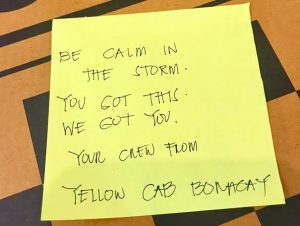 BE CALM IN
THE STORM.
YOU GOT THIS.
WE GOT YOU.
YOUR CREW FROM
YELLOW CAB BOMAGAY